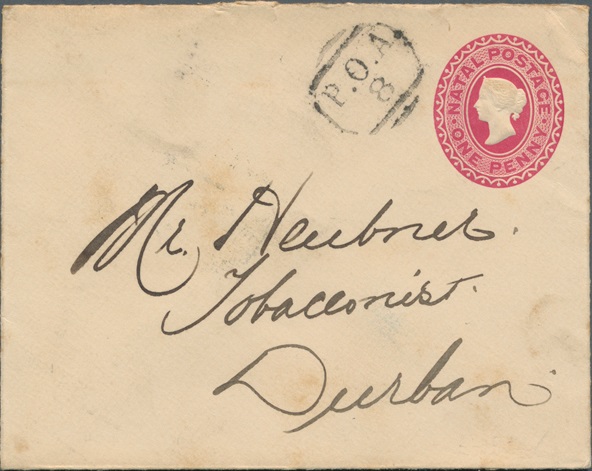 P.O.A
8
NATAL POSTAGE
ONE PENNY
Mr. Heubner.
Tobacconist.
Durban